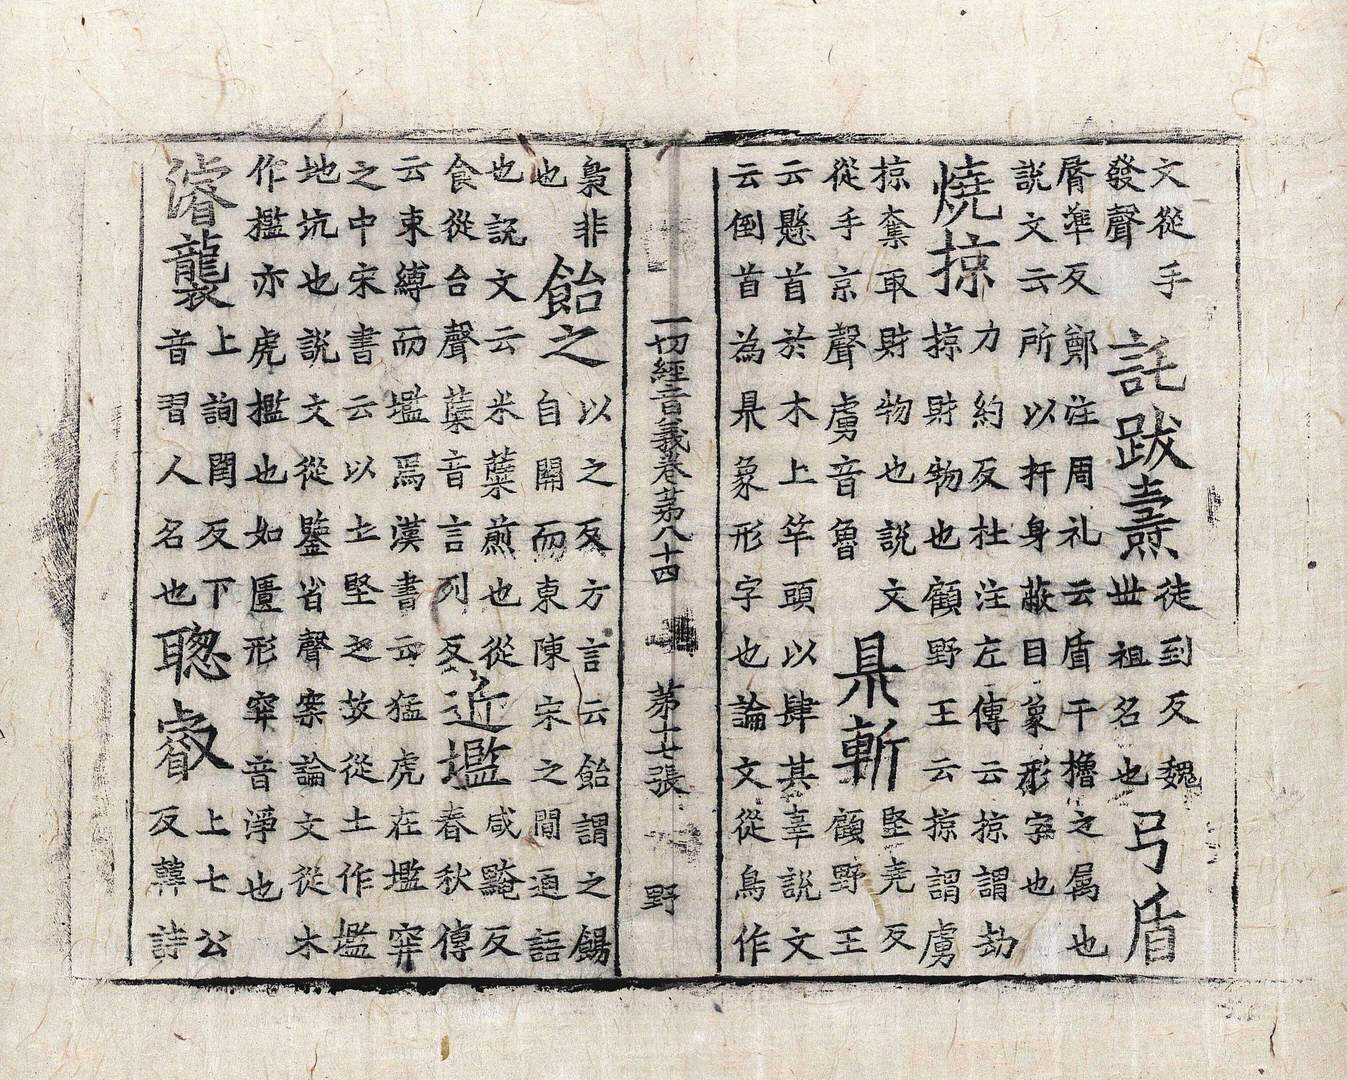 文從手
發聲
託跋燾
徒到反魏
世祖名也
弓盾
脣準反鄭注周礼云盾干櫓之属也
說文云所以扞身蔽目象形字也
燒掠
力約反杜注左傳云掠謂劫
掠財物也顧野王云掠謂虜
掠奪取財物也說文
從手京聲虜音魯
県斬
堅尭反
顧野王
云懸首於木上竿頭以肆其辜說文
云倒首為県象形字也論文從鳥作
一切經音義卷苐八十四 苐十七張 野
梟非
也
飴之
以之反方言云飴謂之餳
自關而東陳宋之間通語
也說文云米蘖煎也從
食從台聲蘖音言列反
近壏
咸黤反
春秋傳
云束縛而壏焉漢書云猛虎在壏穽
之中宋書云以土堅之故從土作壏
地坑也說文從鑒省聲案論文從木
作檻亦虎檻也如匱形穽音淨也
濬襲
上詢閏反下
音習人名也
聰叡
上七公
反韓詩